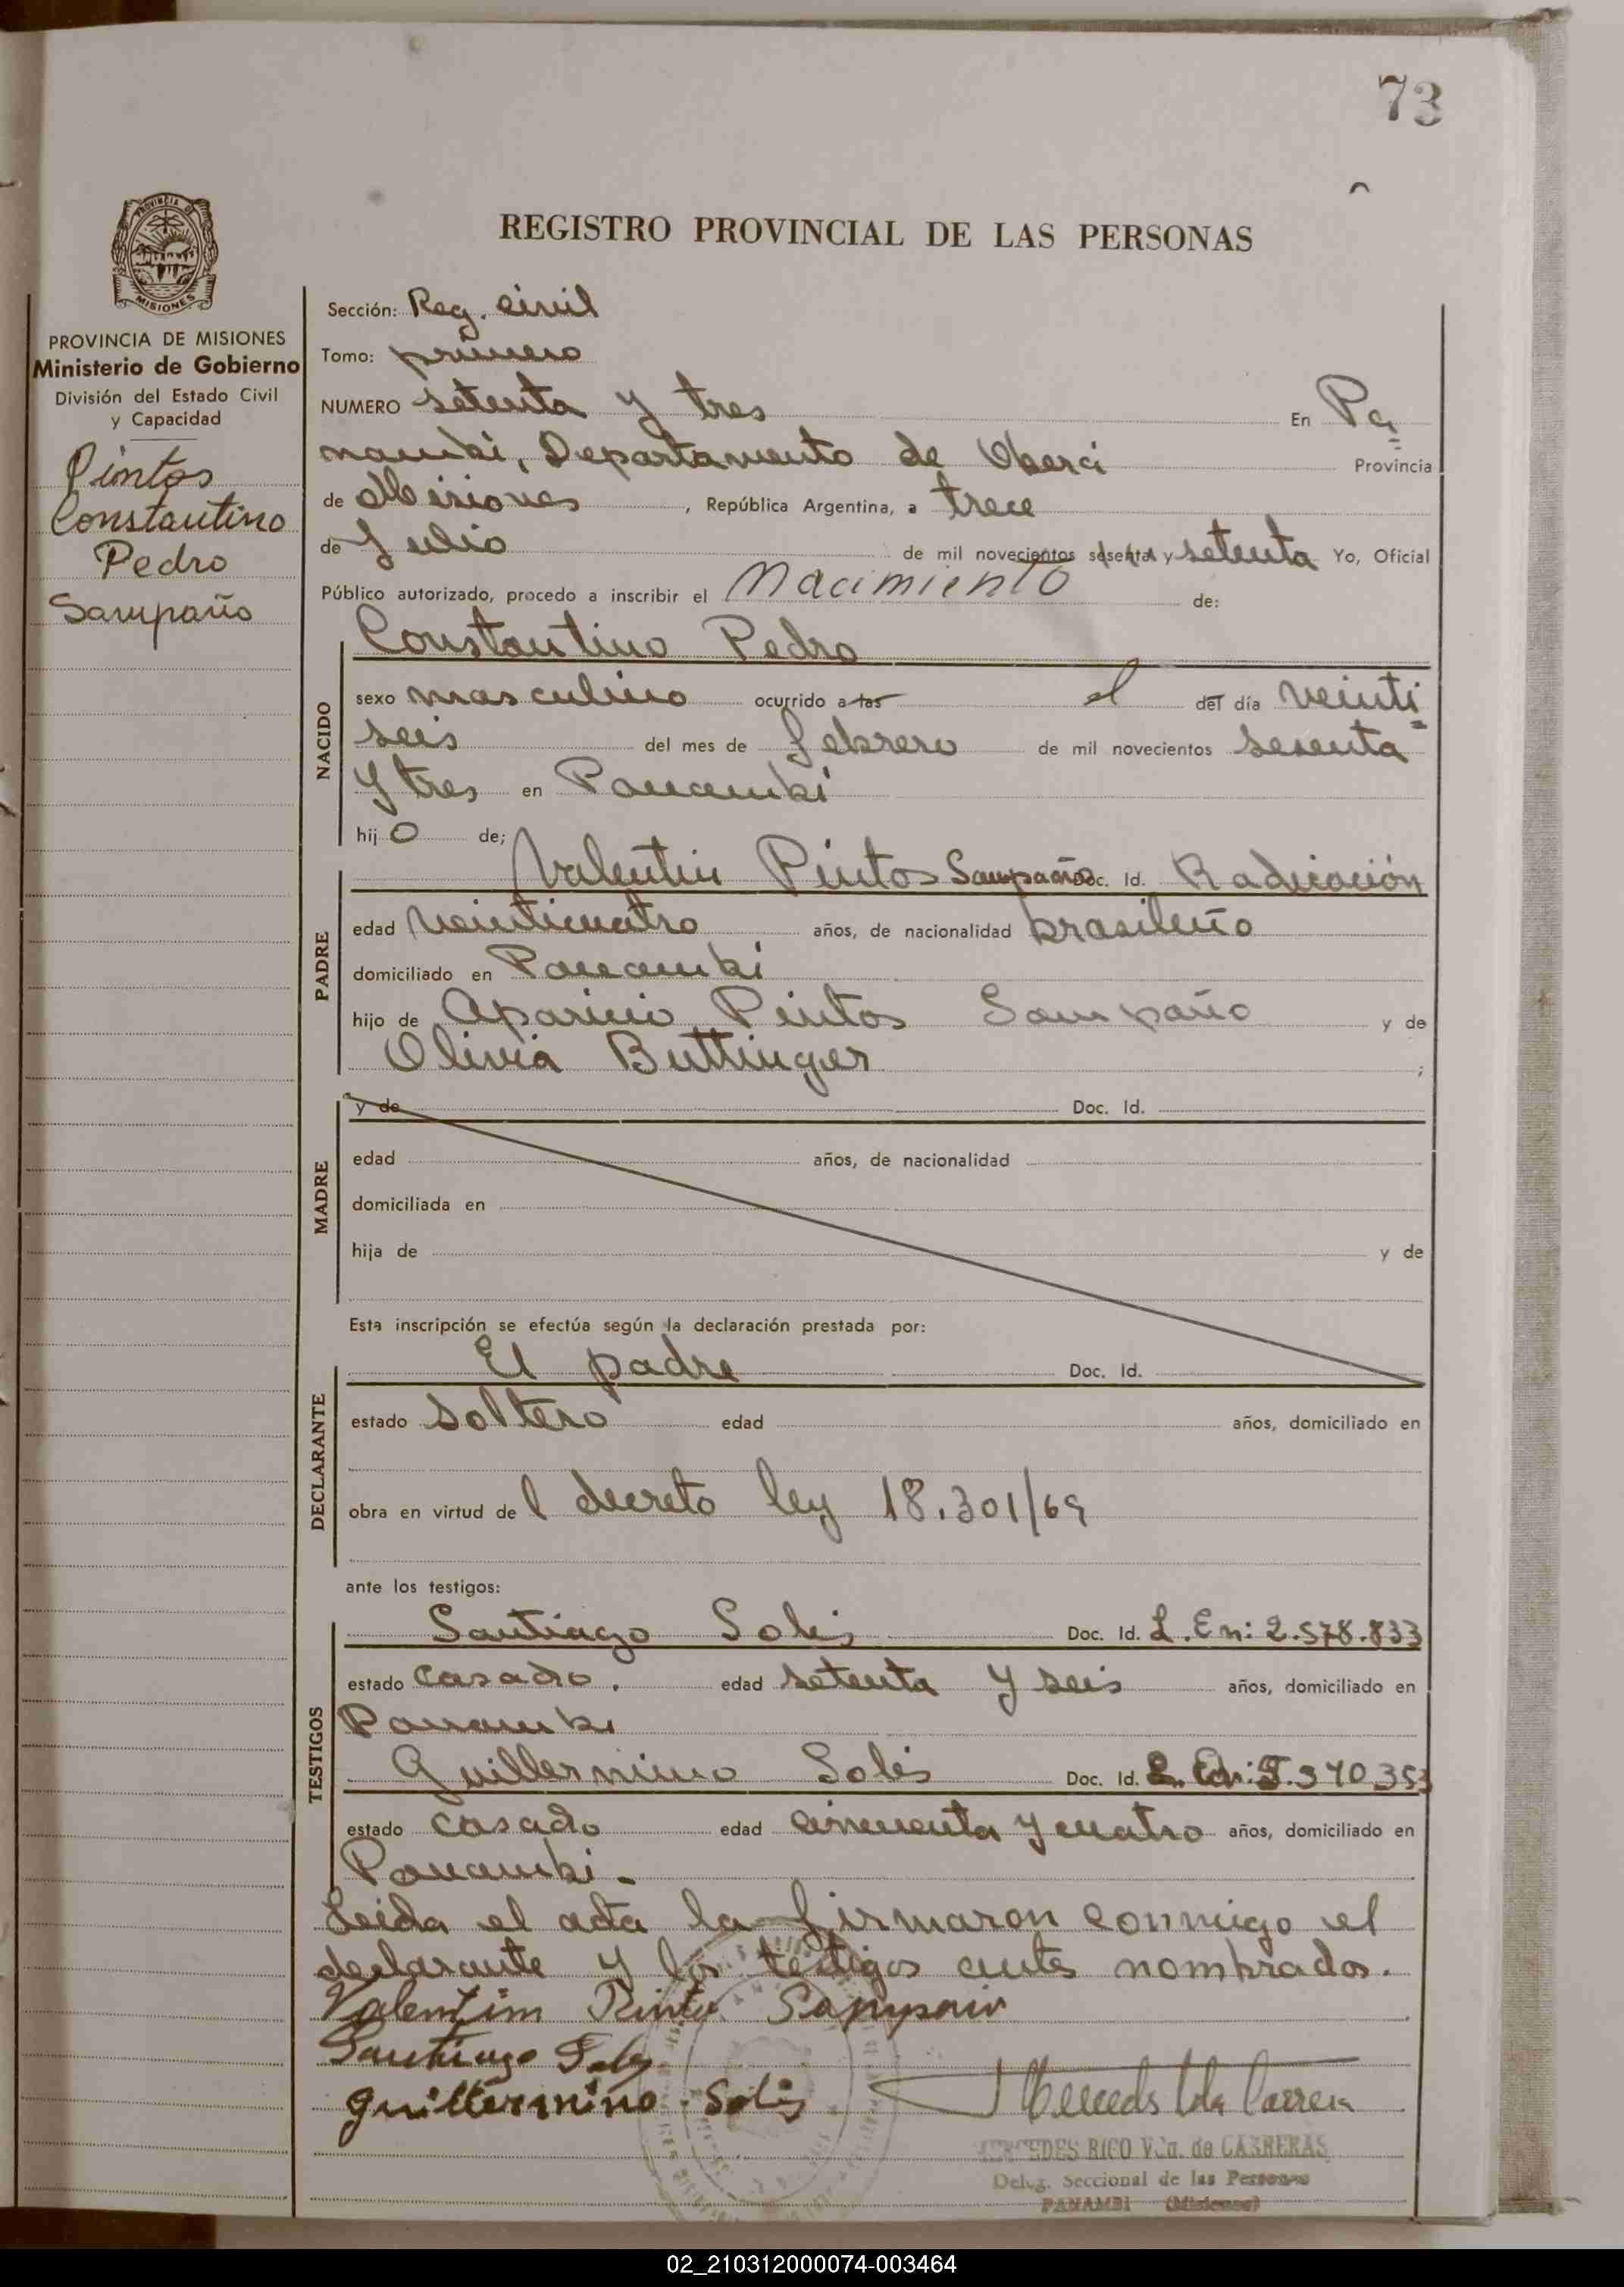 73
REGISTRO PROVINCIAL DE LAS PERSONAS
PROVINCIA DE
MISIONES
PROVINCIA DE MISIONES
Ministerio de Gobierno
División del Estado Civil
y Capacidad
Pintos
Constantino
Pedro
Sampaño
Sección: Reg. civil
Tomo: primero
NUMERO setenta y tres En Pa=
nambi, Departamento de Oberá Provincia
de Misiones, República Argentina, a trece
de Julio de mil novecientos sesenta y setenta Yo, Oficial
Público autorizado, procedo a inscribir el Nacimiento de:
NACIDO
Constantino Pedro
sexo masculino ocurrido a las el del día veinti=
seis del mes de febrero de mil novecientos sesenta
y tres en Panambi
hijo de;
PADRE
Valentin Pintos Sampaño Doc. Id. Radicación
edad veinticuatro años, de nacionalidad brasileño
domiciliado en Panambi
hijo de Aparicio Pintos Sampaño y de
Olivia Buttinger ;
MADRE
y de Doc. Id.
edad años, de nacionalidad
domiciliada en
hija de y de
Esta inscripción se efectúa según la declaración prestada por:
DECLARANTE
El padre Doc. Id.
estado soltero edad años, domiciliado en
obra en virtud del decreto ley 18.301/69
ante los testigos:
TESTIGOS
Santiago Solis Doc. Id. L. En: 2.578.833
estado casado. edad setenta y seis años, domiciliado en
Panambi
Guillermino Solis Doc. Id. 340353
estado casado edad cincuenta y cuatro años, domiciliado en
Panambi.-
Leida el acta la firmaron conmigo el
declarante y los testigos antes nombrados.
Valentim Pinto Sampaio
Santiago Solis
guillermino Solis
MERCEDES RICO Vda. de CARRERAS
Deleg. Seccional de las Personas
PANAMBI (Misiones)
02_210312000074-003464